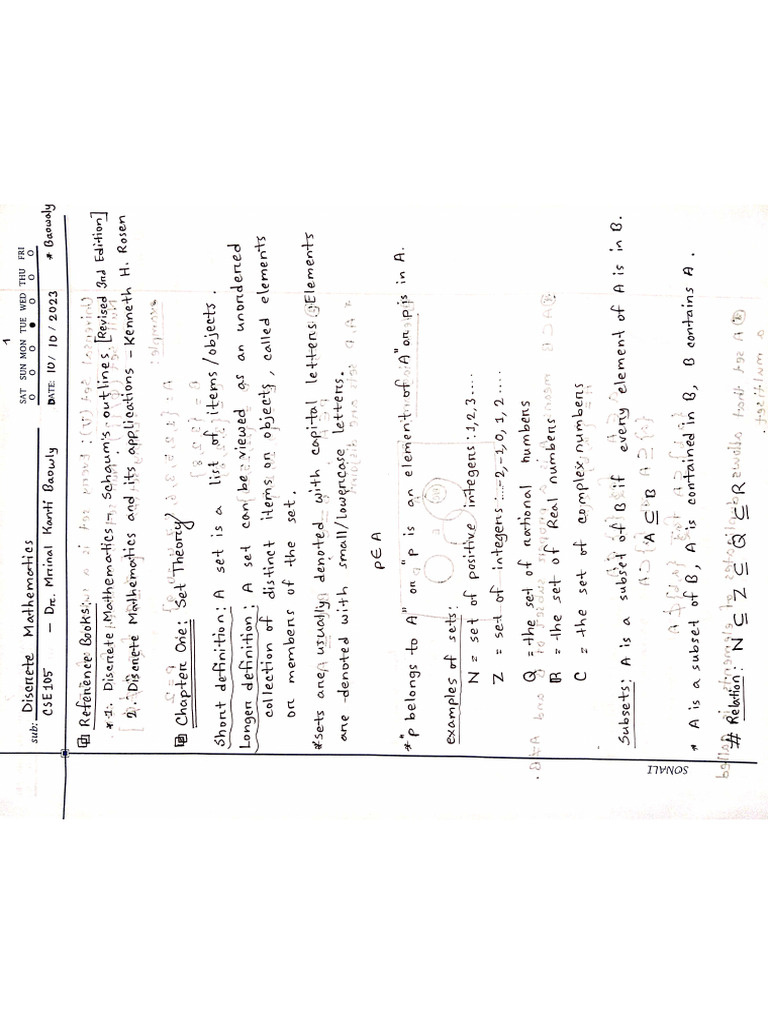 1
SAT SUN MON TUE WED THU FRI
sub: Discrete Mathematics
CSE105 - Dr. Mrinal Kanti Baowly
DATE: 10/10/2023 * Baowaly
Reference Books:
* 1. Discrete Mathematics - Schaum's outlines. [Revised 3rd Edition]
2. Discrete Mathematics and its applications - Kenneth H. Rosen
Chapter One: Set Theory
Short definition: A set is a list of items/objects.
Longer definition: A set can be viewed as an unordered
collection of distinct items or objects, called elements
or members of the set.
* sets are usually denoted with capital letters. Elements
are denoted with small/lowercase letters.
p ∈ A
* "p belongs to A" or "p is an element of A" or p is in A.
examples of sets:
N = set of positive integers: 1,2,3....
Z = set of integers: ...-2,-1,0,1,2....
Q = the set of rational numbers
R = the set of Real numbers
C = the set of complex numbers
Subsets: A is a subset of B if every element of A is in B.
A ⊆ B
* A is a subset of B, A is contained in B, B contains A.
# Relation: N ⊆ Z ⊆ Q ⊆ R
SONALI